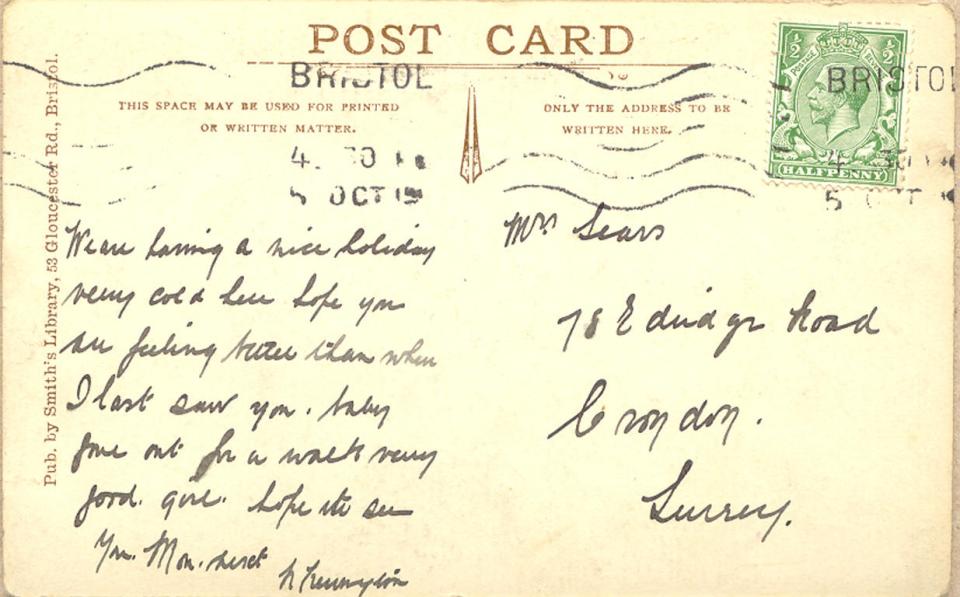 POST CARD
BRISTOL
BRISTOL
THIS SPACE MAY BE USED FOR PRINTED
OR WRITTEN MATTER.
ONLY THE ADDRESS TO BE
WRITTEN HERE.
HALFPENNY
5 OCT
5 OCT
Pub. by Smith's Library, 53 Gloucester Rd., Bristol.
We are having a nice holiday
very cold here hope you
are feeling better than when
I last saw you. baby
gone out for a walk very
good. girl. hope to see
you. Mon. next
Mrs Sears
78 Edridge Road
Croydon.
Surrey.